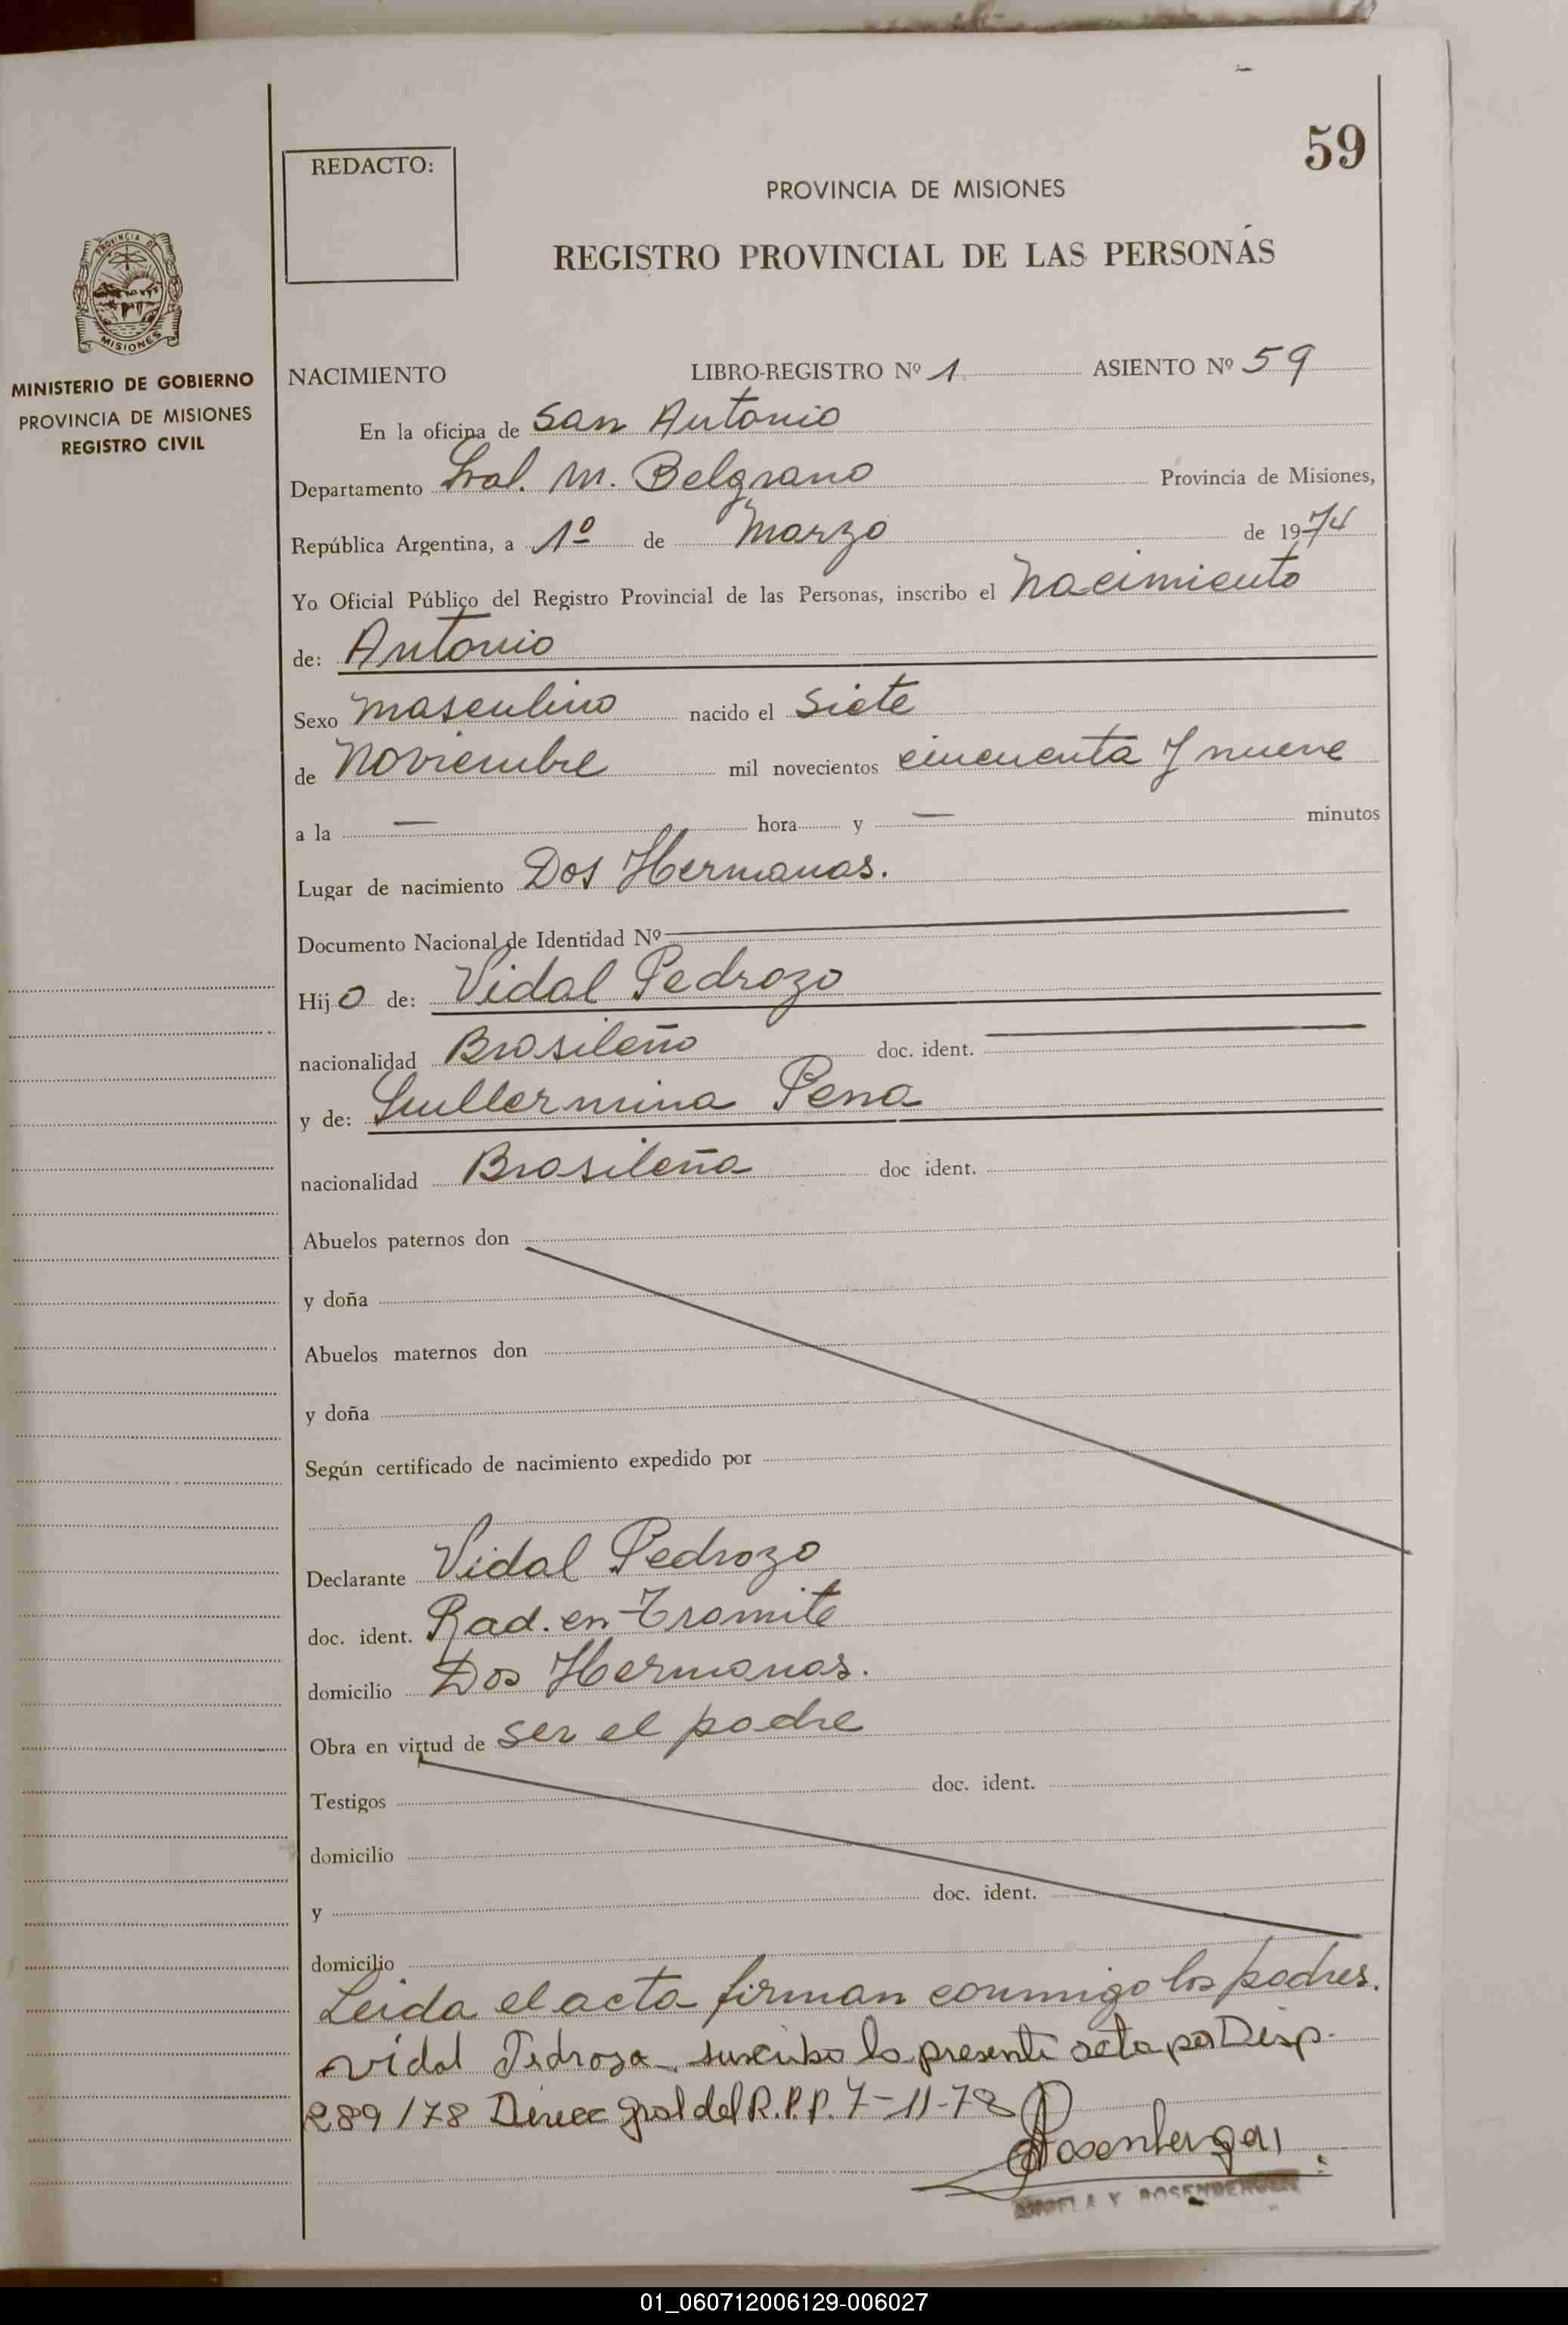 59
REDACTO:
PROVINCIA DE MISIONES
REGISTRO PROVINCIAL DE LAS PERSONAS
PROVINCIA DE
MISIONES
MINISTERIO DE GOBIERNO
PROVINCIA DE MISIONES
REGISTRO CIVIL
NACIMIENTO LIBRO-REGISTRO Nº 1 ASIENTO Nº 59
En la oficina de San Antonio
Departamento Gral. M. Belgrano Provincia de Misiones,
República Argentina, a 1º de Marzo de 1974
Yo Oficial Público del Registro Provincial de las Personas, inscribo el nacimiento
de: Antonio
Sexo masculino nacido el siete
de Noviembre mil novecientos cincuenta y nueve
a la — hora y — minutos
Lugar de nacimiento Dos Hermanas.
Documento Nacional de Identidad Nº
Hijo de: Vidal Pedrozo
nacionalidad Brasileño doc. ident.
y de: Guillermina Pena
nacionalidad Brasileña doc ident.
Abuelos paternos don
y doña
Abuelos maternos don
y doña
Según certificado de nacimiento expedido por
Declarante Vidal Pedrozo
doc. ident. Rad. en Tramite
domicilio Dos Hermanas.
Obra en virtud de ser el padre
Testigos doc. ident.
domicilio
y doc. ident.
domicilio
Leida el acta firman conmigo los padres.
Vidal Pedroza suscribo la presente acta por Disp.
289/78 Direcc gral del R.P.P. 7-11-78
Rosenberger
ANGELA Y. ROSENBERGER
01_060712006129-006027